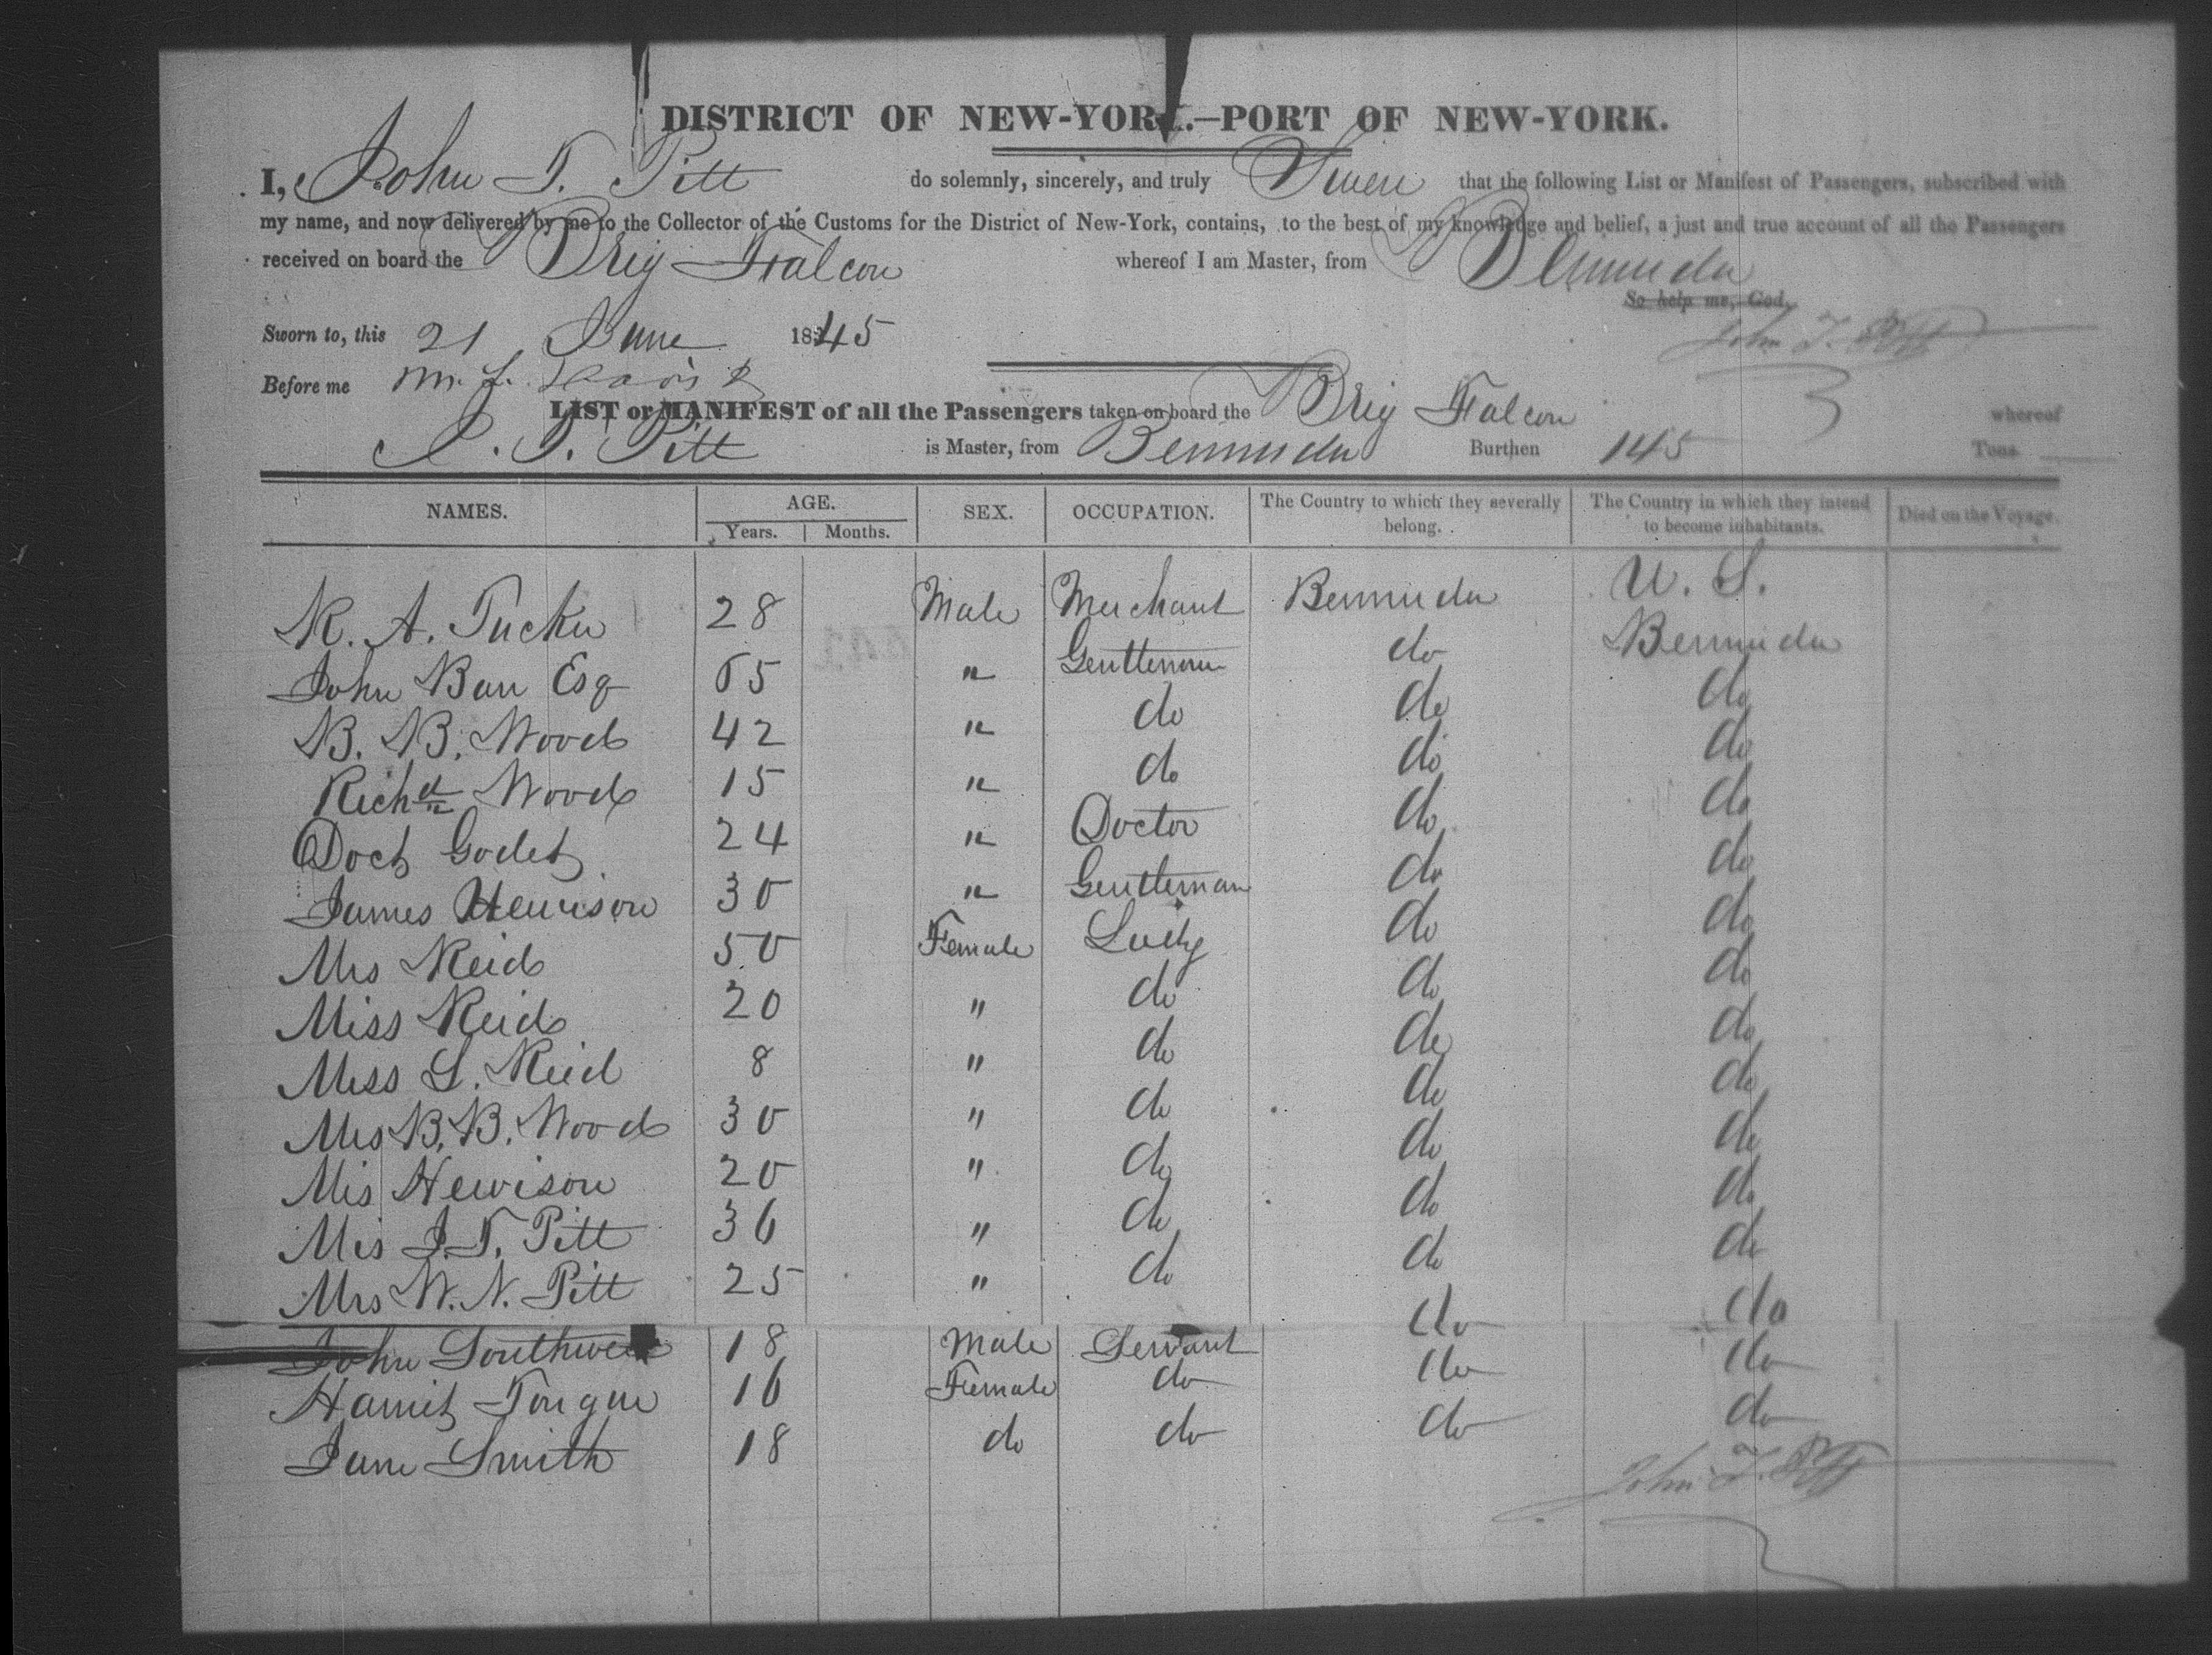 DISTRICT OF NEW-YORK.—PORT OF NEW-YORK.
I, John T. Pitt do solemnly, sincerely, and truly Swear that the following List or Manifest of Passengers, subscribed with
my name, and now delivered by me to the Collector of the Customs for the District of New-York, contains, to the best of my knowledge and belief, a just and true account of all the Passengers
received on board the Brig Falcon whereof I am Master, from Bermuda
So help me, God.
Sworn to, this 21 June 1845 John T. Pitt
Before me M. L. Davis
LIST or MANIFEST of all the Passengers taken on board the Brig Falcon whereof
J. T. Pitt is Master, from Bermuda Burthen 145 Tons
NAMES. AGE. Years. Months. SEX. OCCUPATION. The Country to which they severally belong. The Country in which they intend to become inhabitants. Died on the Voyage.
R. A. Tucker 28 Male Merchant Bermuda U. S.
John Barr Esq 65 " Gentleman do Bermuda
B. B. Wood 42 " do do do
Richd Wood 15 " do do do
Doct Godet 24 " Doctor do do
James Hewison 30 " Gentleman do do
Mrs Reid 50 Female Lady do do
Miss Reid 20 " do do do
Miss L. Reid 8 " do do do
Mrs B. B. Wood 30 " do do do
Mrs Hewison 20 " do do do
Mrs J. T. Pitt 36 " do do do
Mrs W. N. Pitt 25 " do do do
John 18 Male Servant do do
Harriet 16 Female do do do
Jane Smith 18 do do do do
John T. Pitt